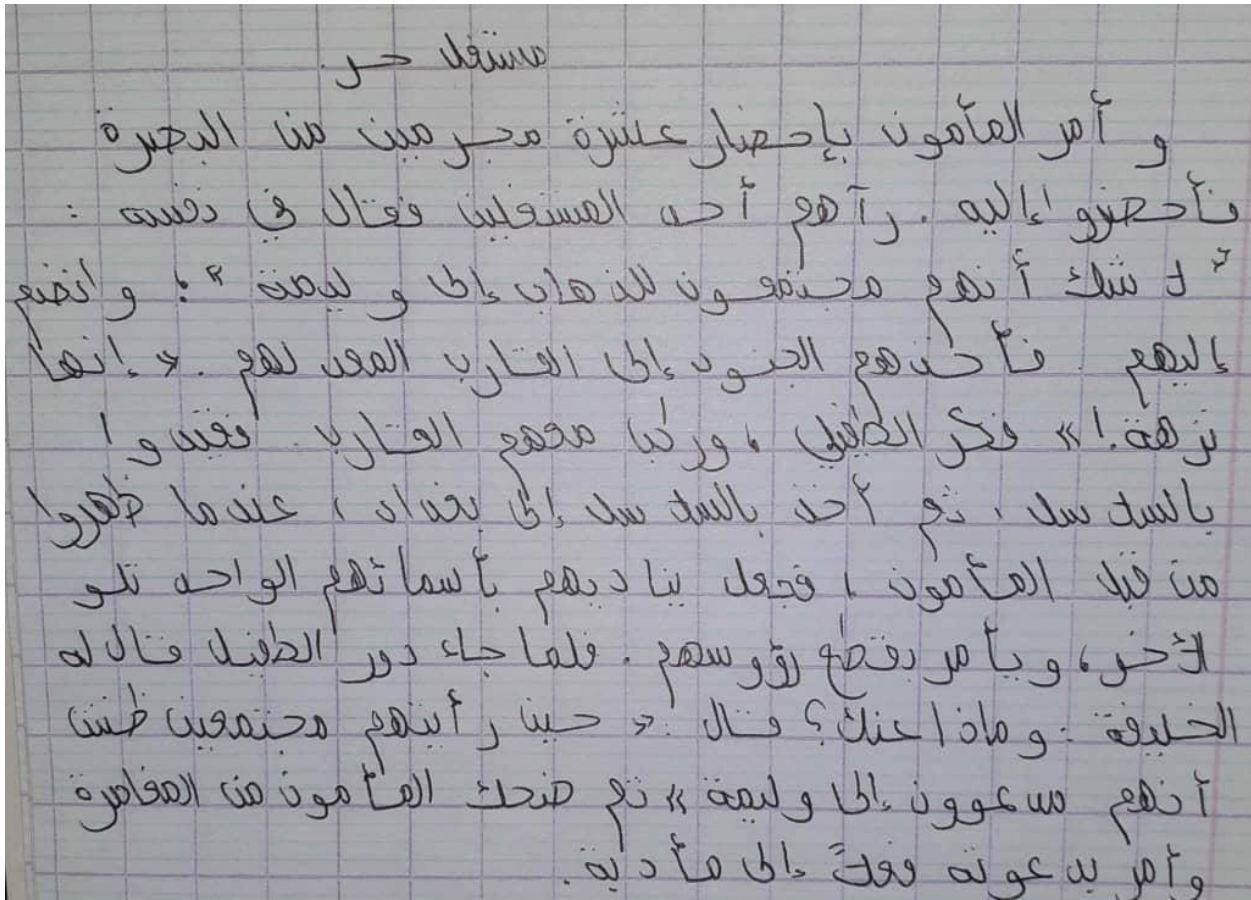 مستغل حر
و أمر المأمون بإحضار عشرة مجرمين من البصرة
فأحضروا إليه . رآهم أحد المستغلين فقال في نفسه :
" لا شك أنهم مجتمعون للذهاب إلى وليمة "؛ وانضم
إليهم . فأخذهم الجنود إلى القارب المعد لهم . « إنها
نزهة ! » فكر الطفيلي ، وركب معهم القارب . فقيدوا
بالسلاسل ، ثم أخذ بالسلاسل إلى بغداد ، عندما ظهروا
من قبل المأمون ، فجعل يناديهم بأسمائهم الواحد تلو
الآخر ، ويأمر بقطع رؤوسهم . فلما جاء دور الطفيل قال له
الخليفة : وماذا عنك ؟ قال : « حين رأيتهم مجتمعين ظننت
أنهم مدعوون إلى وليمة » ثم ضحك المأمون من المغامرة
وأمر بدعوته فعلاً إلى مأدبة .